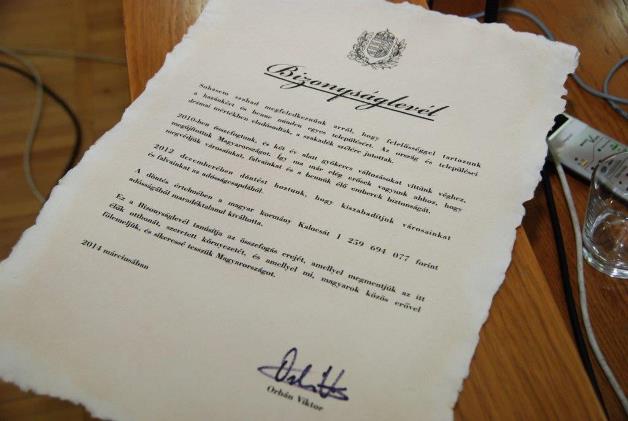 Bizonyságlevél
Sohasem szabad megfeledkeznünk arról, hogy felelősséggel tartozunk
a hazánkért és benne minden egyes településért. Az ország és települései
drámai mértékben eladósodtak, a szakadék szélére jutottak.
2010-ben összefogtunk, és két év alatt gyökeres változásokat vittünk véghez,
megújítottuk Magyarországot. Így ma már elég erősek vagyunk ahhoz, hogy
megvédjük városainkat, falvainkat és a bennük élő emberek biztonságát.
2012 decemberében döntést hoztunk, hogy kiszabadítjuk városainkat
és falvainkat az adósságcsapdából.
A döntés értelmében a magyar kormány Kalocsát 1 259 694 077 forint
adósságától maradéktalanul kiváltotta.
Ez a Bizonyságlevél tanúsítja az összefogás erejét, amellyel megmentjük az itt
élők otthonát, szeretett környezetét, és amellyel mi, magyarok közös erővel
fölemeljük, és sikeressé tesszük Magyarországot.
2014 márciusában
Orbán Viktor